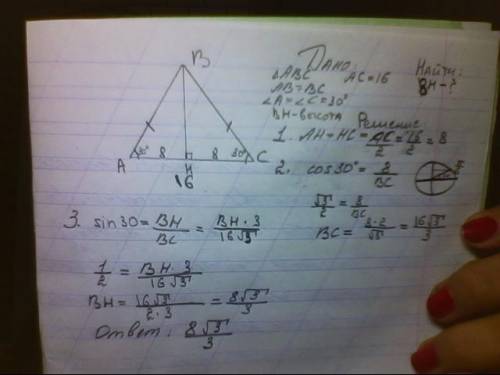 B
30° 8 8 30°
A H C
16
Дано:
△ABC AC=16
AB=BC
∠A=∠C=30°
BH-высота
Найти:
BH-?
Решение
1. AH=HC=AC/2=16/2=8
2. cos30°=8/BC
√3/2=8/BC
BC=8·2/√3=16√3/3
3. sin30=BH/BC=BH·3/16√3
1/2=BH·3/16√3
BH=16√3/2·3=8√3/3
Ответ: 8√3/3